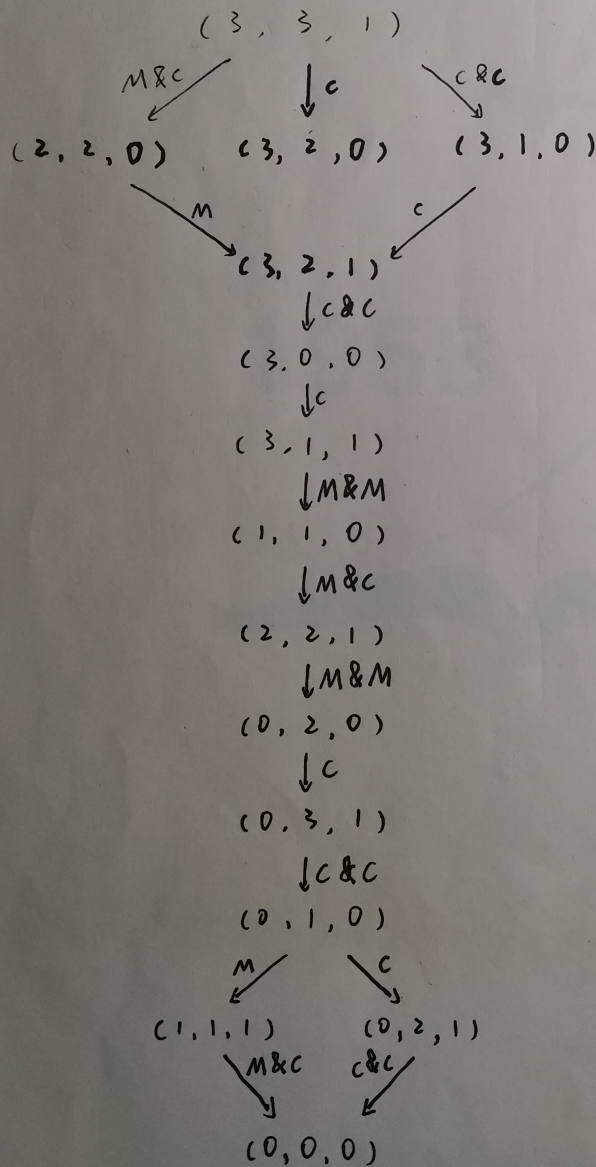 (3, 3, 1)
M&C C C&C
(2, 2, 0) (3, 2, 0) (3, 1, 0)
M C
(3, 2, 1)
C&C
(3, 0, 0)
C
(3, 1, 1)
M&M
(1, 1, 0)
M&C
(2, 2, 1)
M&M
(0, 2, 0)
C
(0, 3, 1)
C&C
(0, 1, 0)
M C
(1, 1, 1) (0, 2, 1)
M&C C&C
(0, 0, 0)